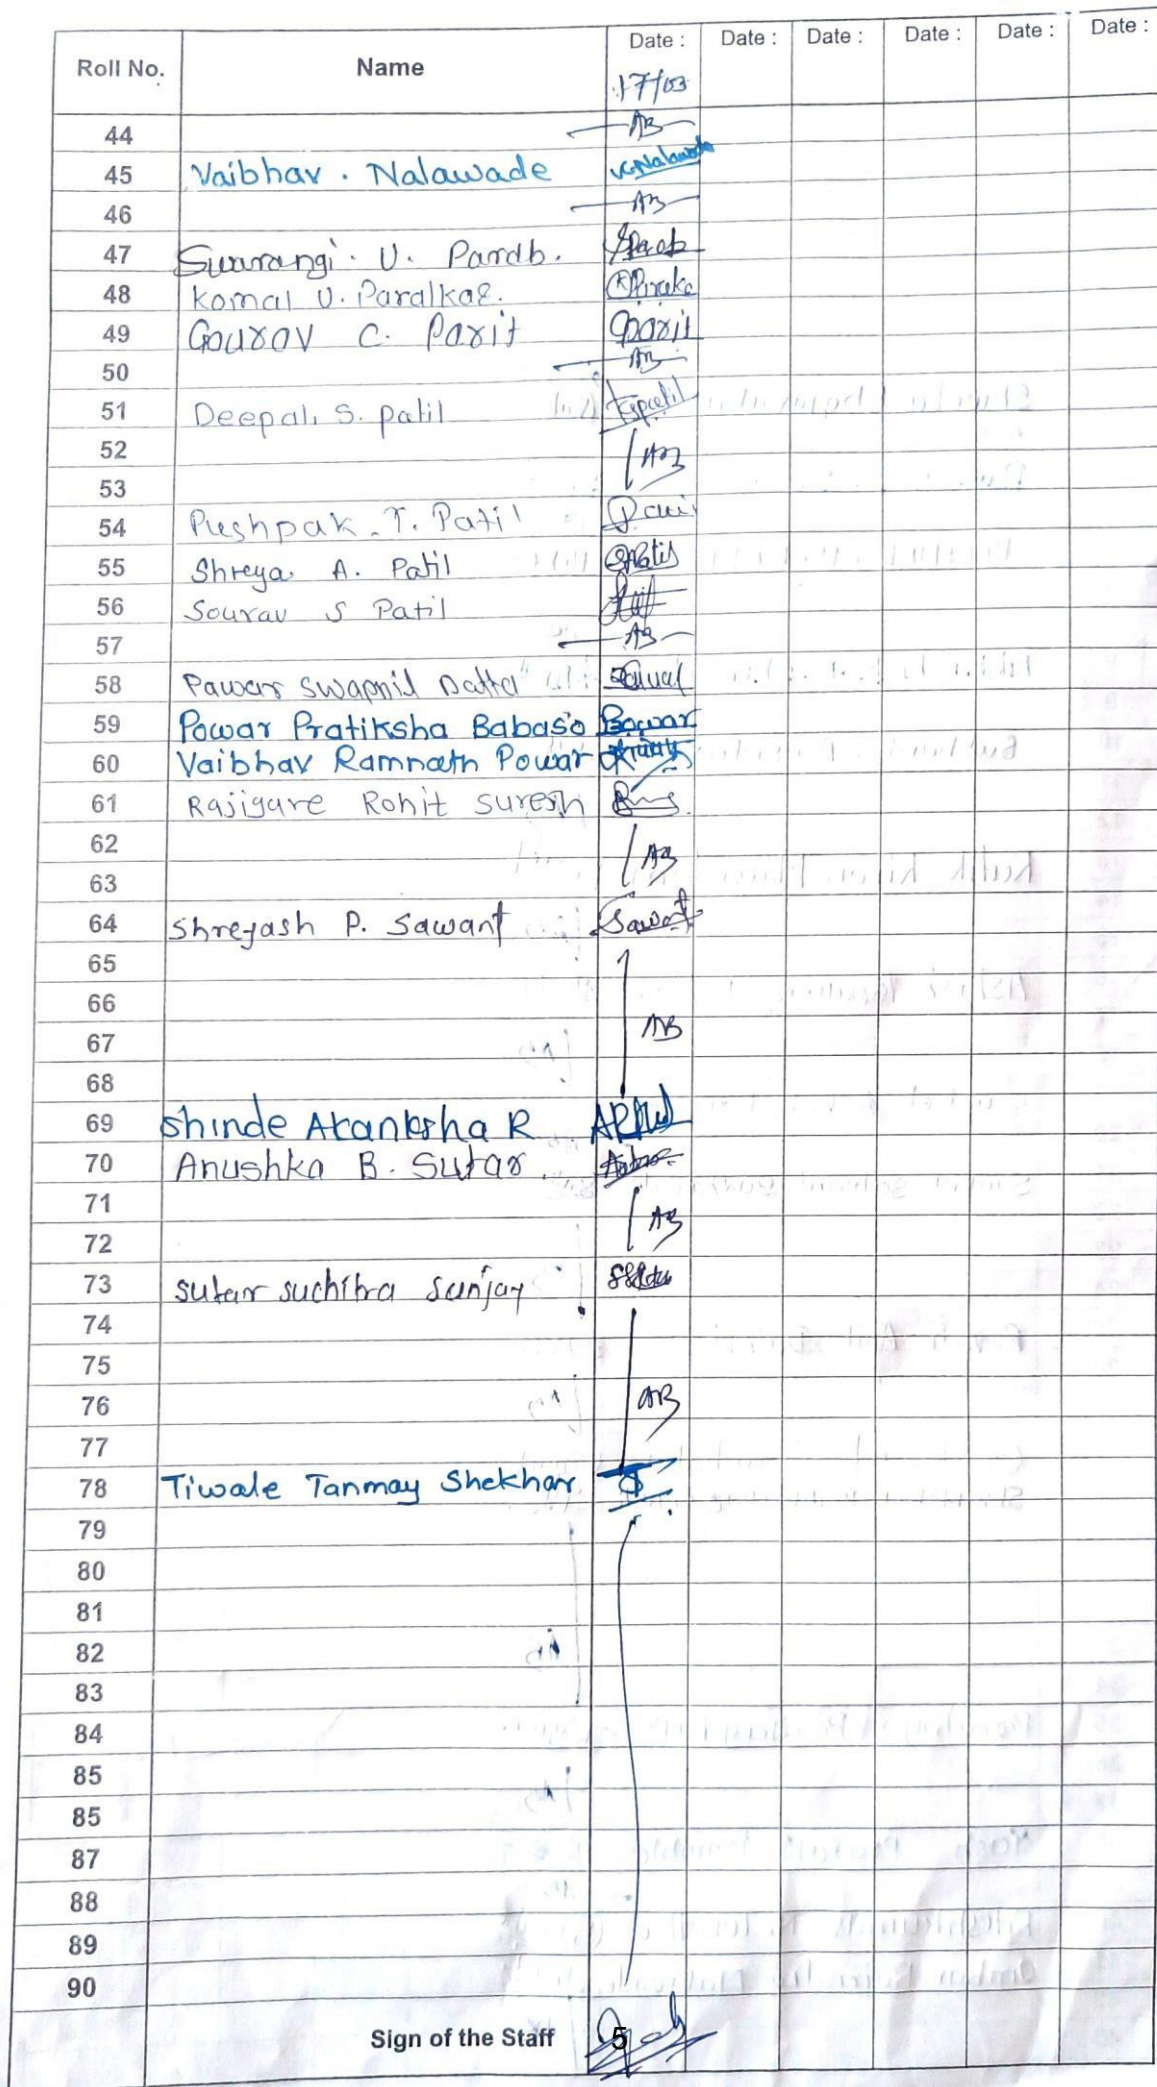 Roll No. Name Date : Date : Date : Date : Date : Date :
17/03
44 AB
45 Vaibhav . Nalawade VGNalawade
46 AB
47 Swarangi . U. Parab.
48 Komal U. Paralkar.
49 Gourav C. Parit Gparit
50 AB
51 Deepali S. patil
52 AB
53
54 Pushpak . T. Patil
55 Shreya. A. Patil SAPatil
56 Sourav S Patil
57 AB
58 Pawar Swapnil Datta
59 Powar Pratiksha Babaso Powar
60 Vaibhav Ramnath Powar
61 Rajigare Rohit suresh
62 AB
63
64 Shreyash P. Sawant Sawant
65
66
67 AB
68
69 Shinde Akanksha R
70 Anushka B. Sutar
71 AB
72
73 sutar suchitra sanjay
74
75
76 AB
77
78 Tiwale Tanmay Shekhar
79
80
81
82
83
84
85
85
87
88
89
90
Sign of the Staff 5